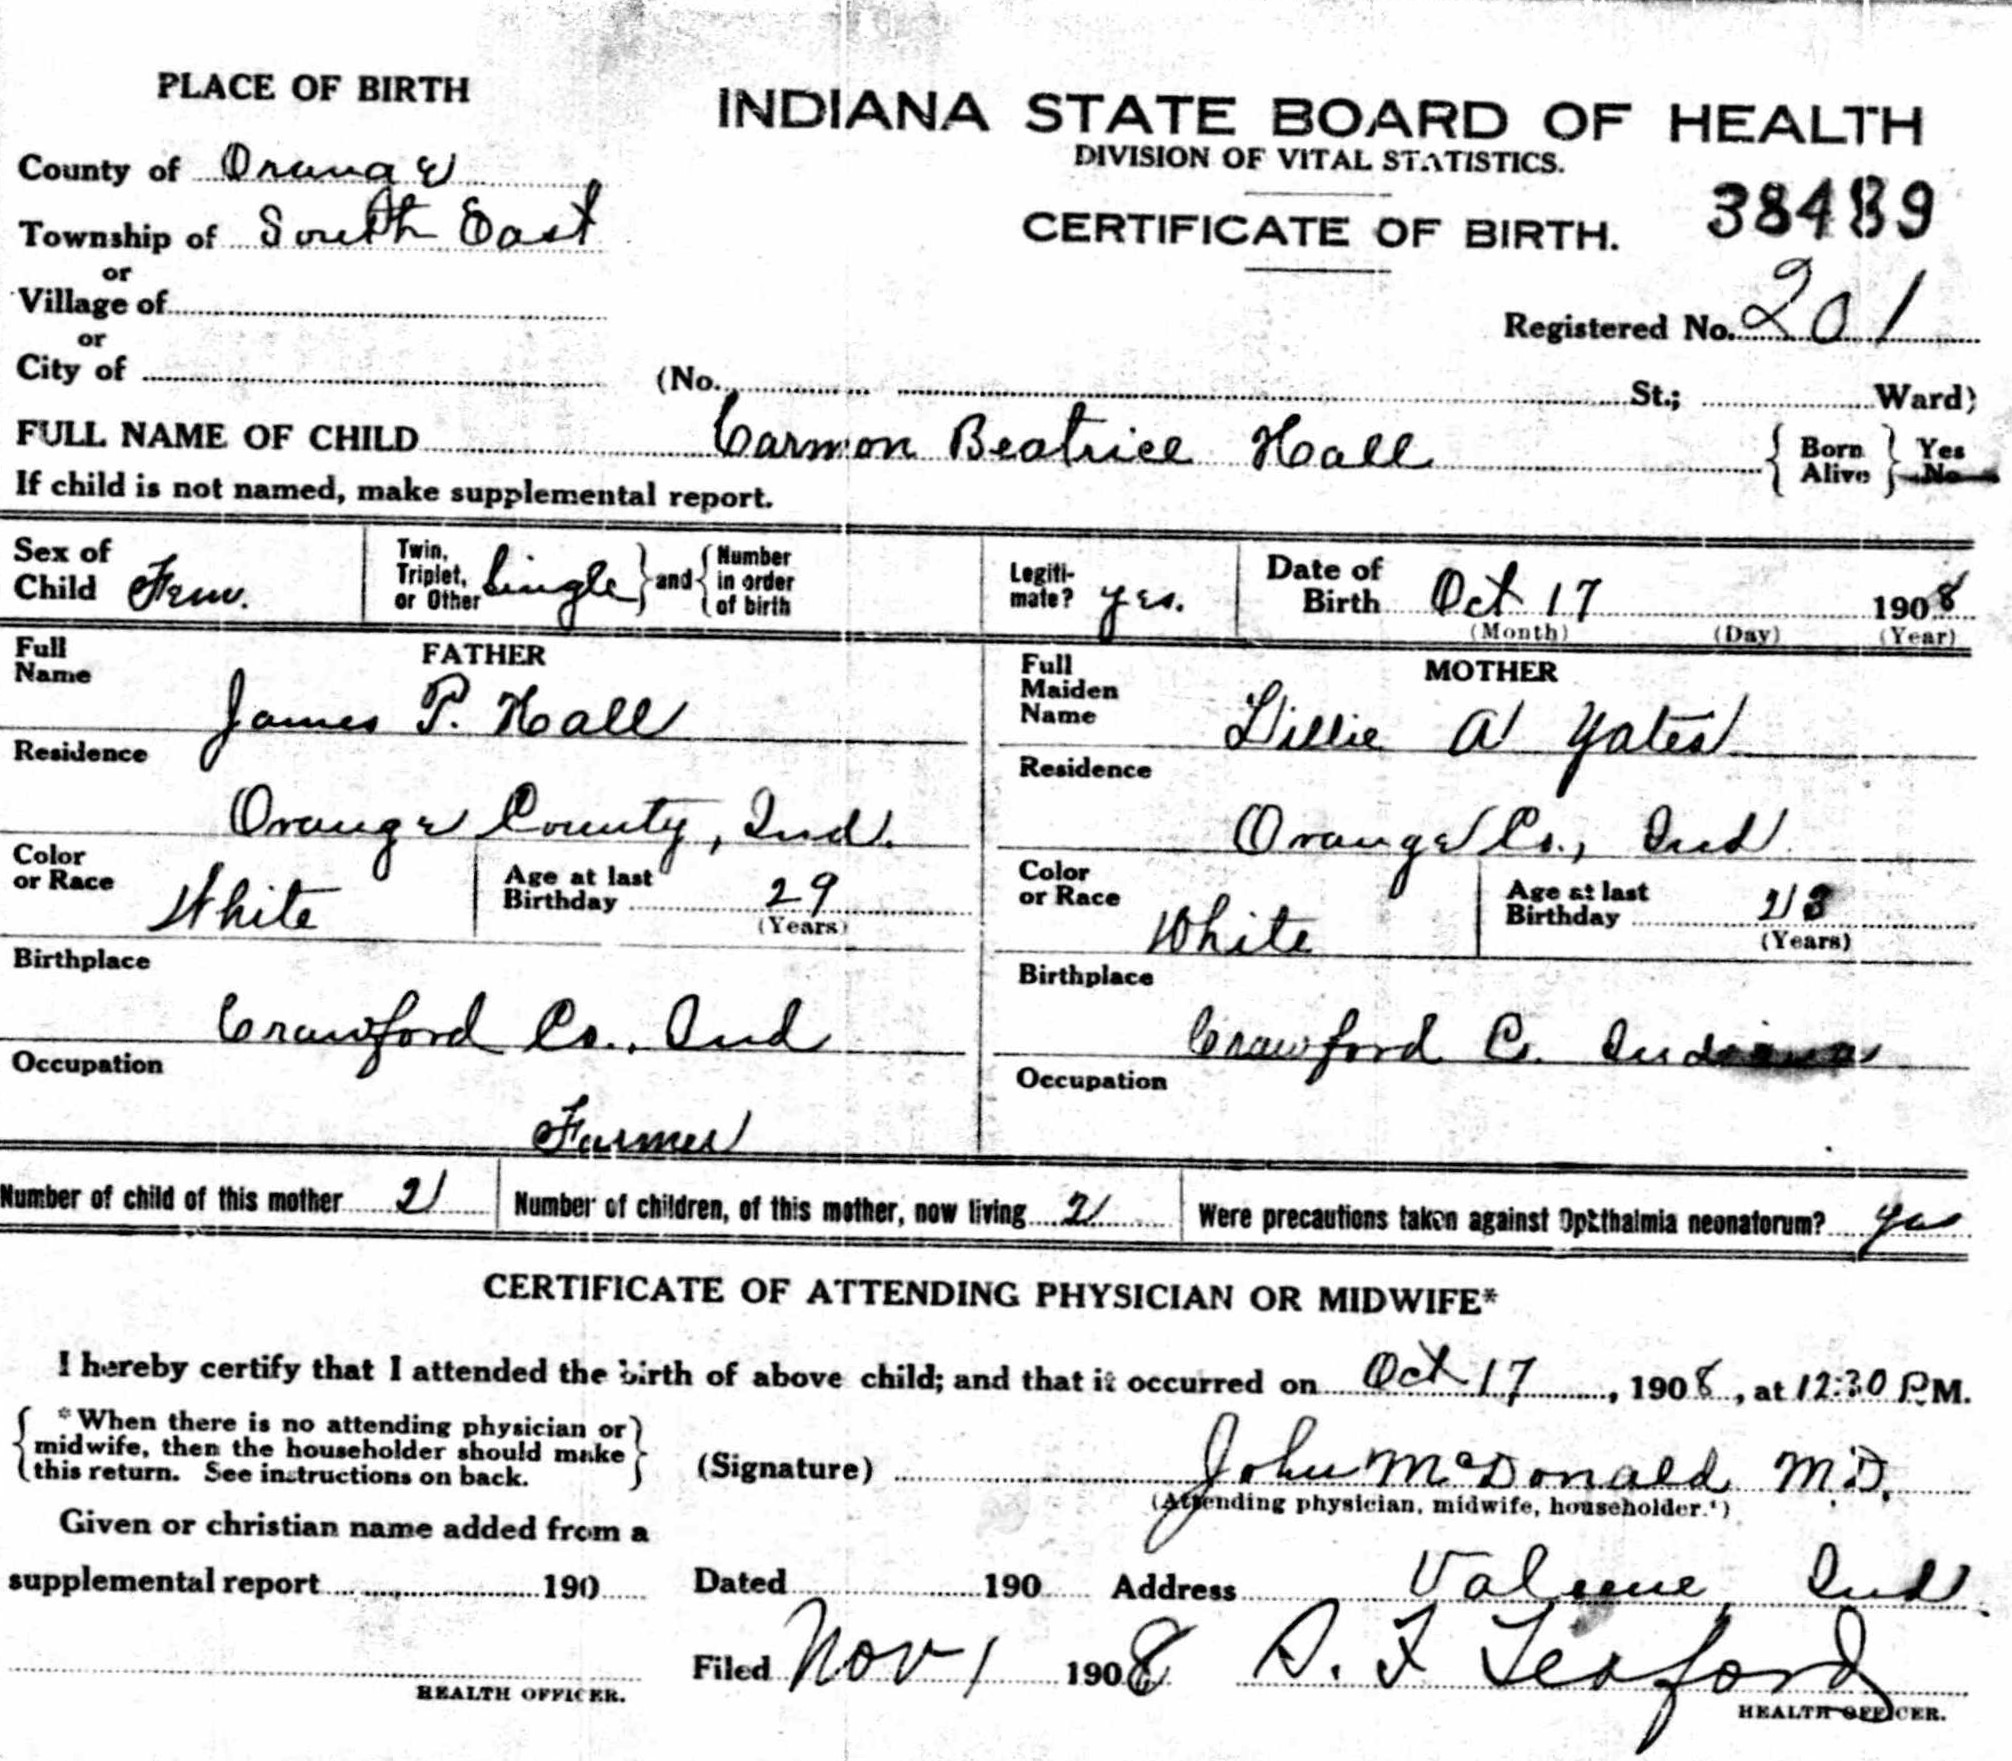 PLACE OF BIRTH
INDIANA STATE BOARD OF HEALTH
DIVISION OF VITAL STATISTICS.
County of Orange
38439
Township of South East
CERTIFICATE OF BIRTH.
or
Village of
Registered No. 201
or
City of (No. St.; Ward)
FULL NAME OF CHILD Carmon Beatrice Hall { Born Alive } Yes No
If child is not named, make supplemental report.
Sex of Child Fem.
Twin, Triplet, or Other Single } and { Number in order of birth
Legiti-mate? yes.
Date of Birth Oct 17 1908
(Month) (Day) (Year)
FATHER
Full Name
James P. Hall
Residence
Orange County, Ind.
Color or Race White
Age at last Birthday 29
(Years)
Birthplace
Crawford Co., Ind
Occupation
Farmer
MOTHER
Full Maiden Name
Lillie A Yates
Residence
Orange Co., Ind
Color or Race White
Age at last Birthday 23
(Years)
Birthplace
Crawford Co. Indiana
Occupation
Number of child of this mother 2 Number of children, of this mother, now living 2 Were precautions taken against Ophthalmia neonatorum? yes
CERTIFICATE OF ATTENDING PHYSICIAN OR MIDWIFE*
I hereby certify that I attended the birth of above child; and that it occurred on Oct 17, 1908, at 12:30 P.M.
{ *When there is no attending physician or
midwife, then the householder should make
this return. See instructions on back. }
(Signature) John McDonald M.D.
(Attending physician, midwife, householder.*)
Given or christian name added from a
supplemental report 190
Dated 190 Address Valeene, Ind.
Filed Nov 1 1908
HEALTH OFFICER.
HEALTH OFFICER.